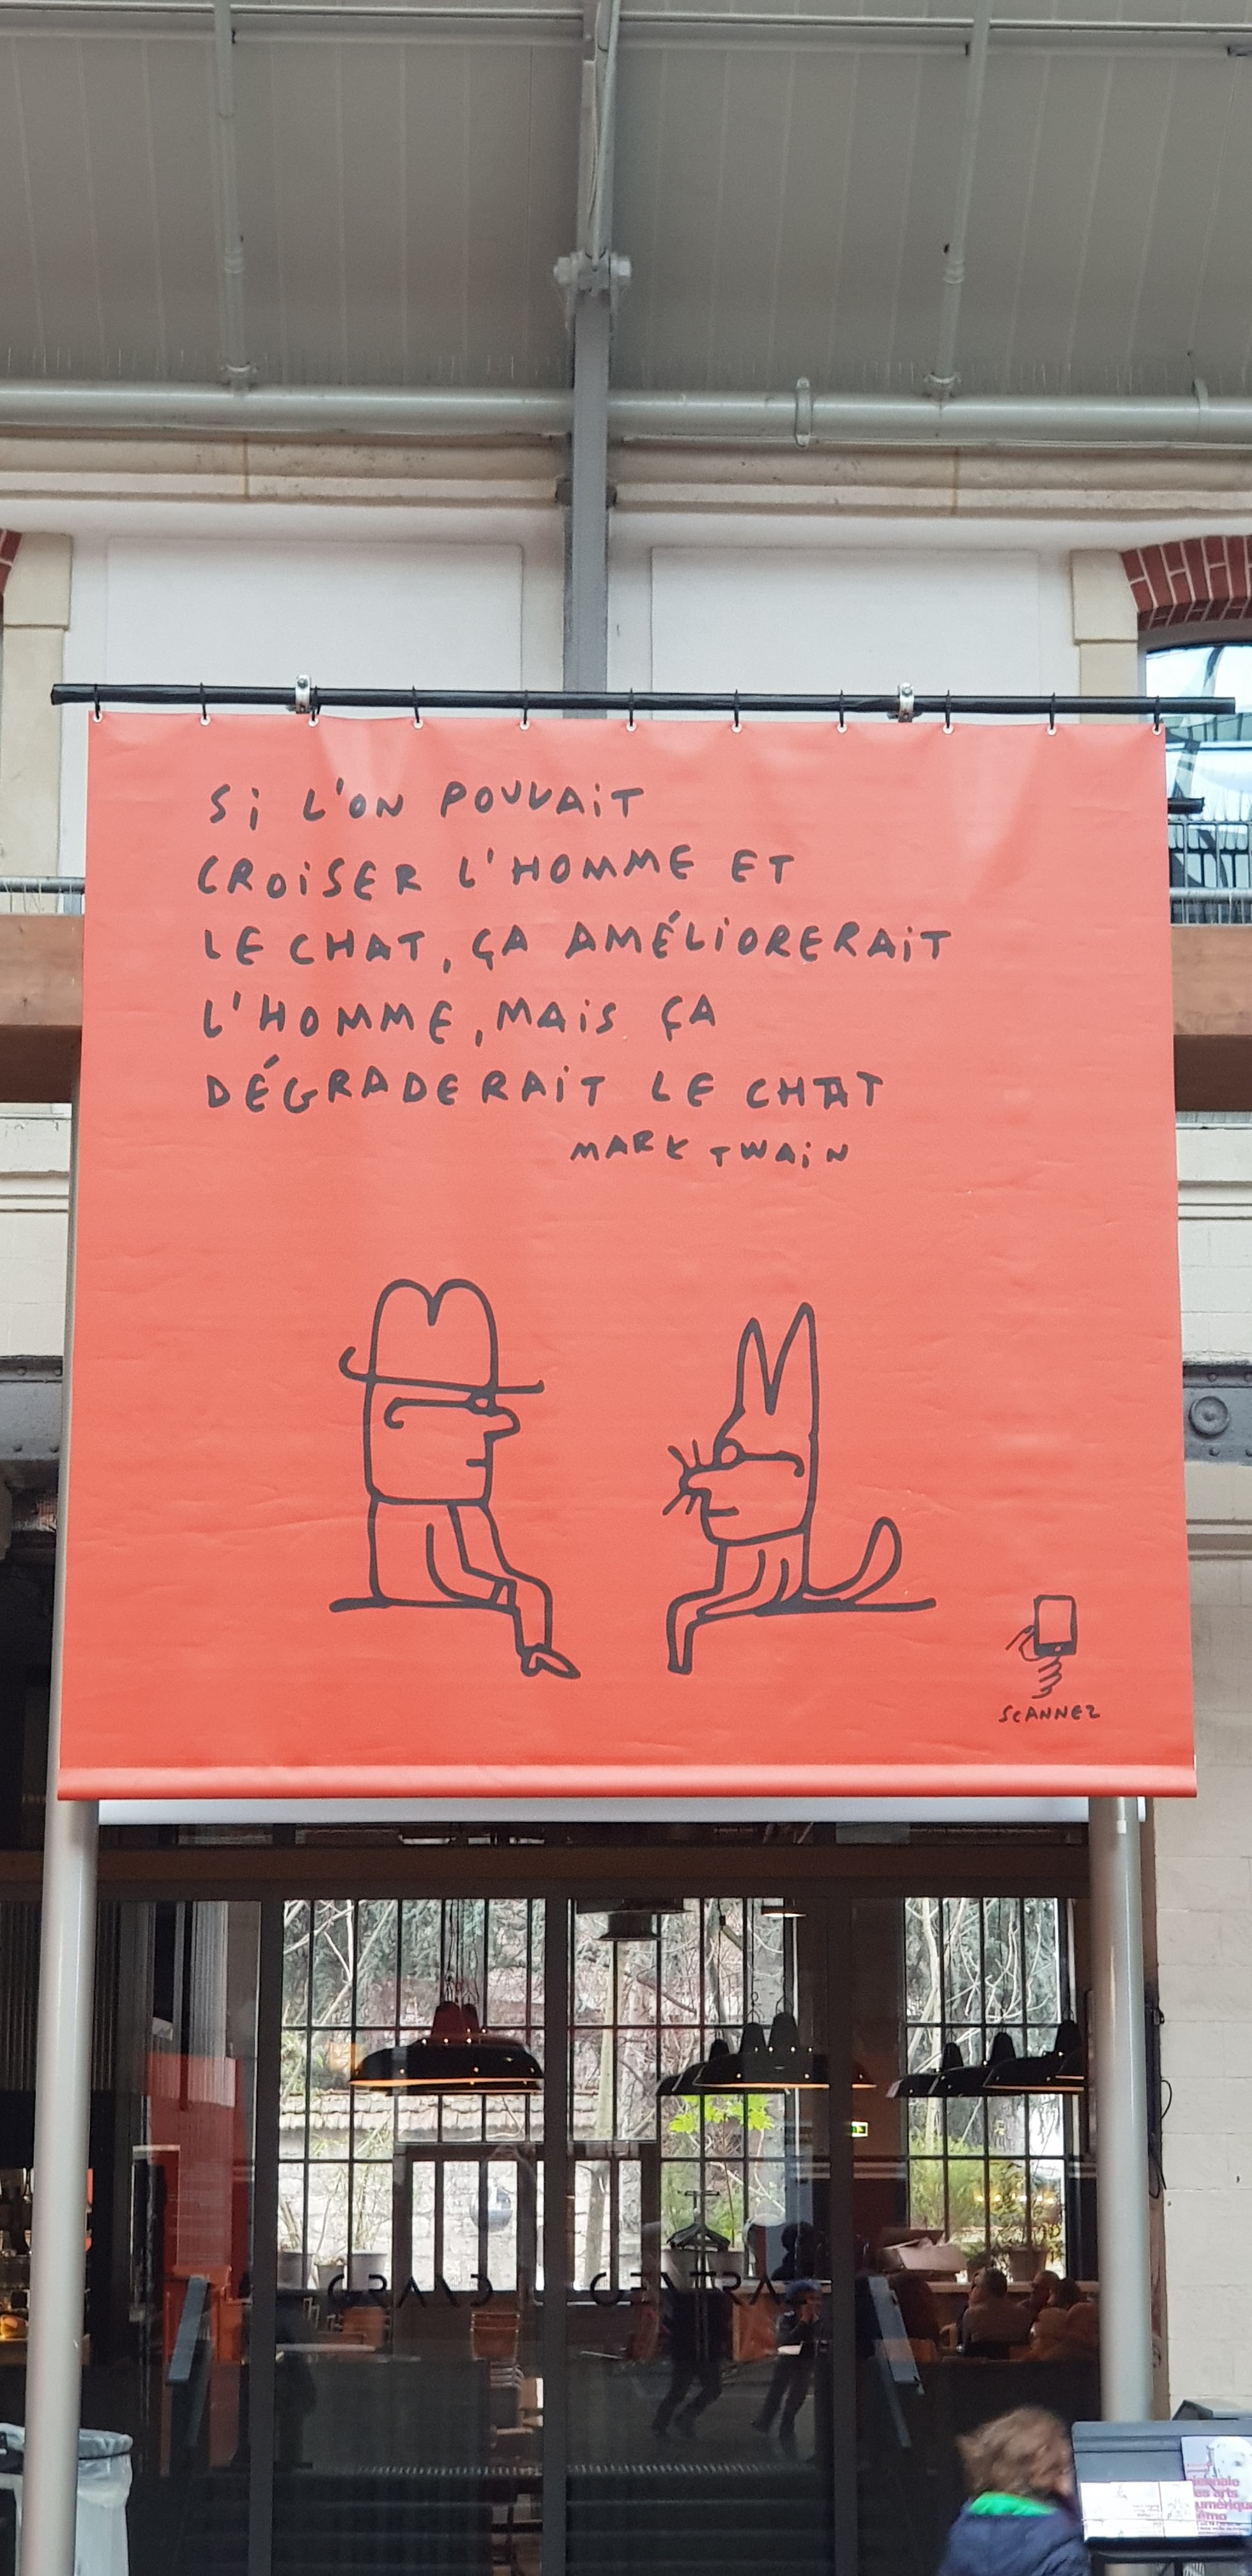 Si L'ON POUVAiT
CROiSER L'HOMME ET
LE CHAT, ÇA AMÉLiORERAiT
L'HOMME, MAiS ÇA
DÉGRADERAiT LE CHAT
MARK TWAiN
SCANNEZ
GRAND CENTRAL